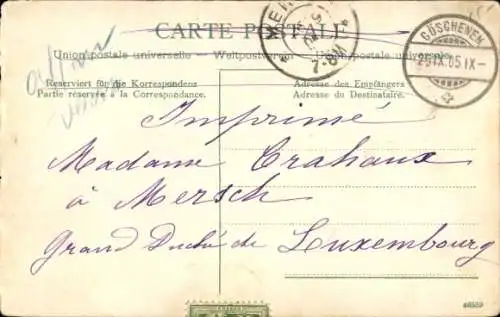 CARTE POSTALE
Union postale universelle — Weltpostverein — Unione postale universale
Reserviert für die Korrespondenz
Partie réservée à la Correspondance.
Adresse des Empfängers
Adresse du Destinataire.
GÖSCHENEN
25.IX.05.IX-
MER
7-8N
Imprimé
Madame Crahaux
à Mersch
Grand Duché de Luxembourg